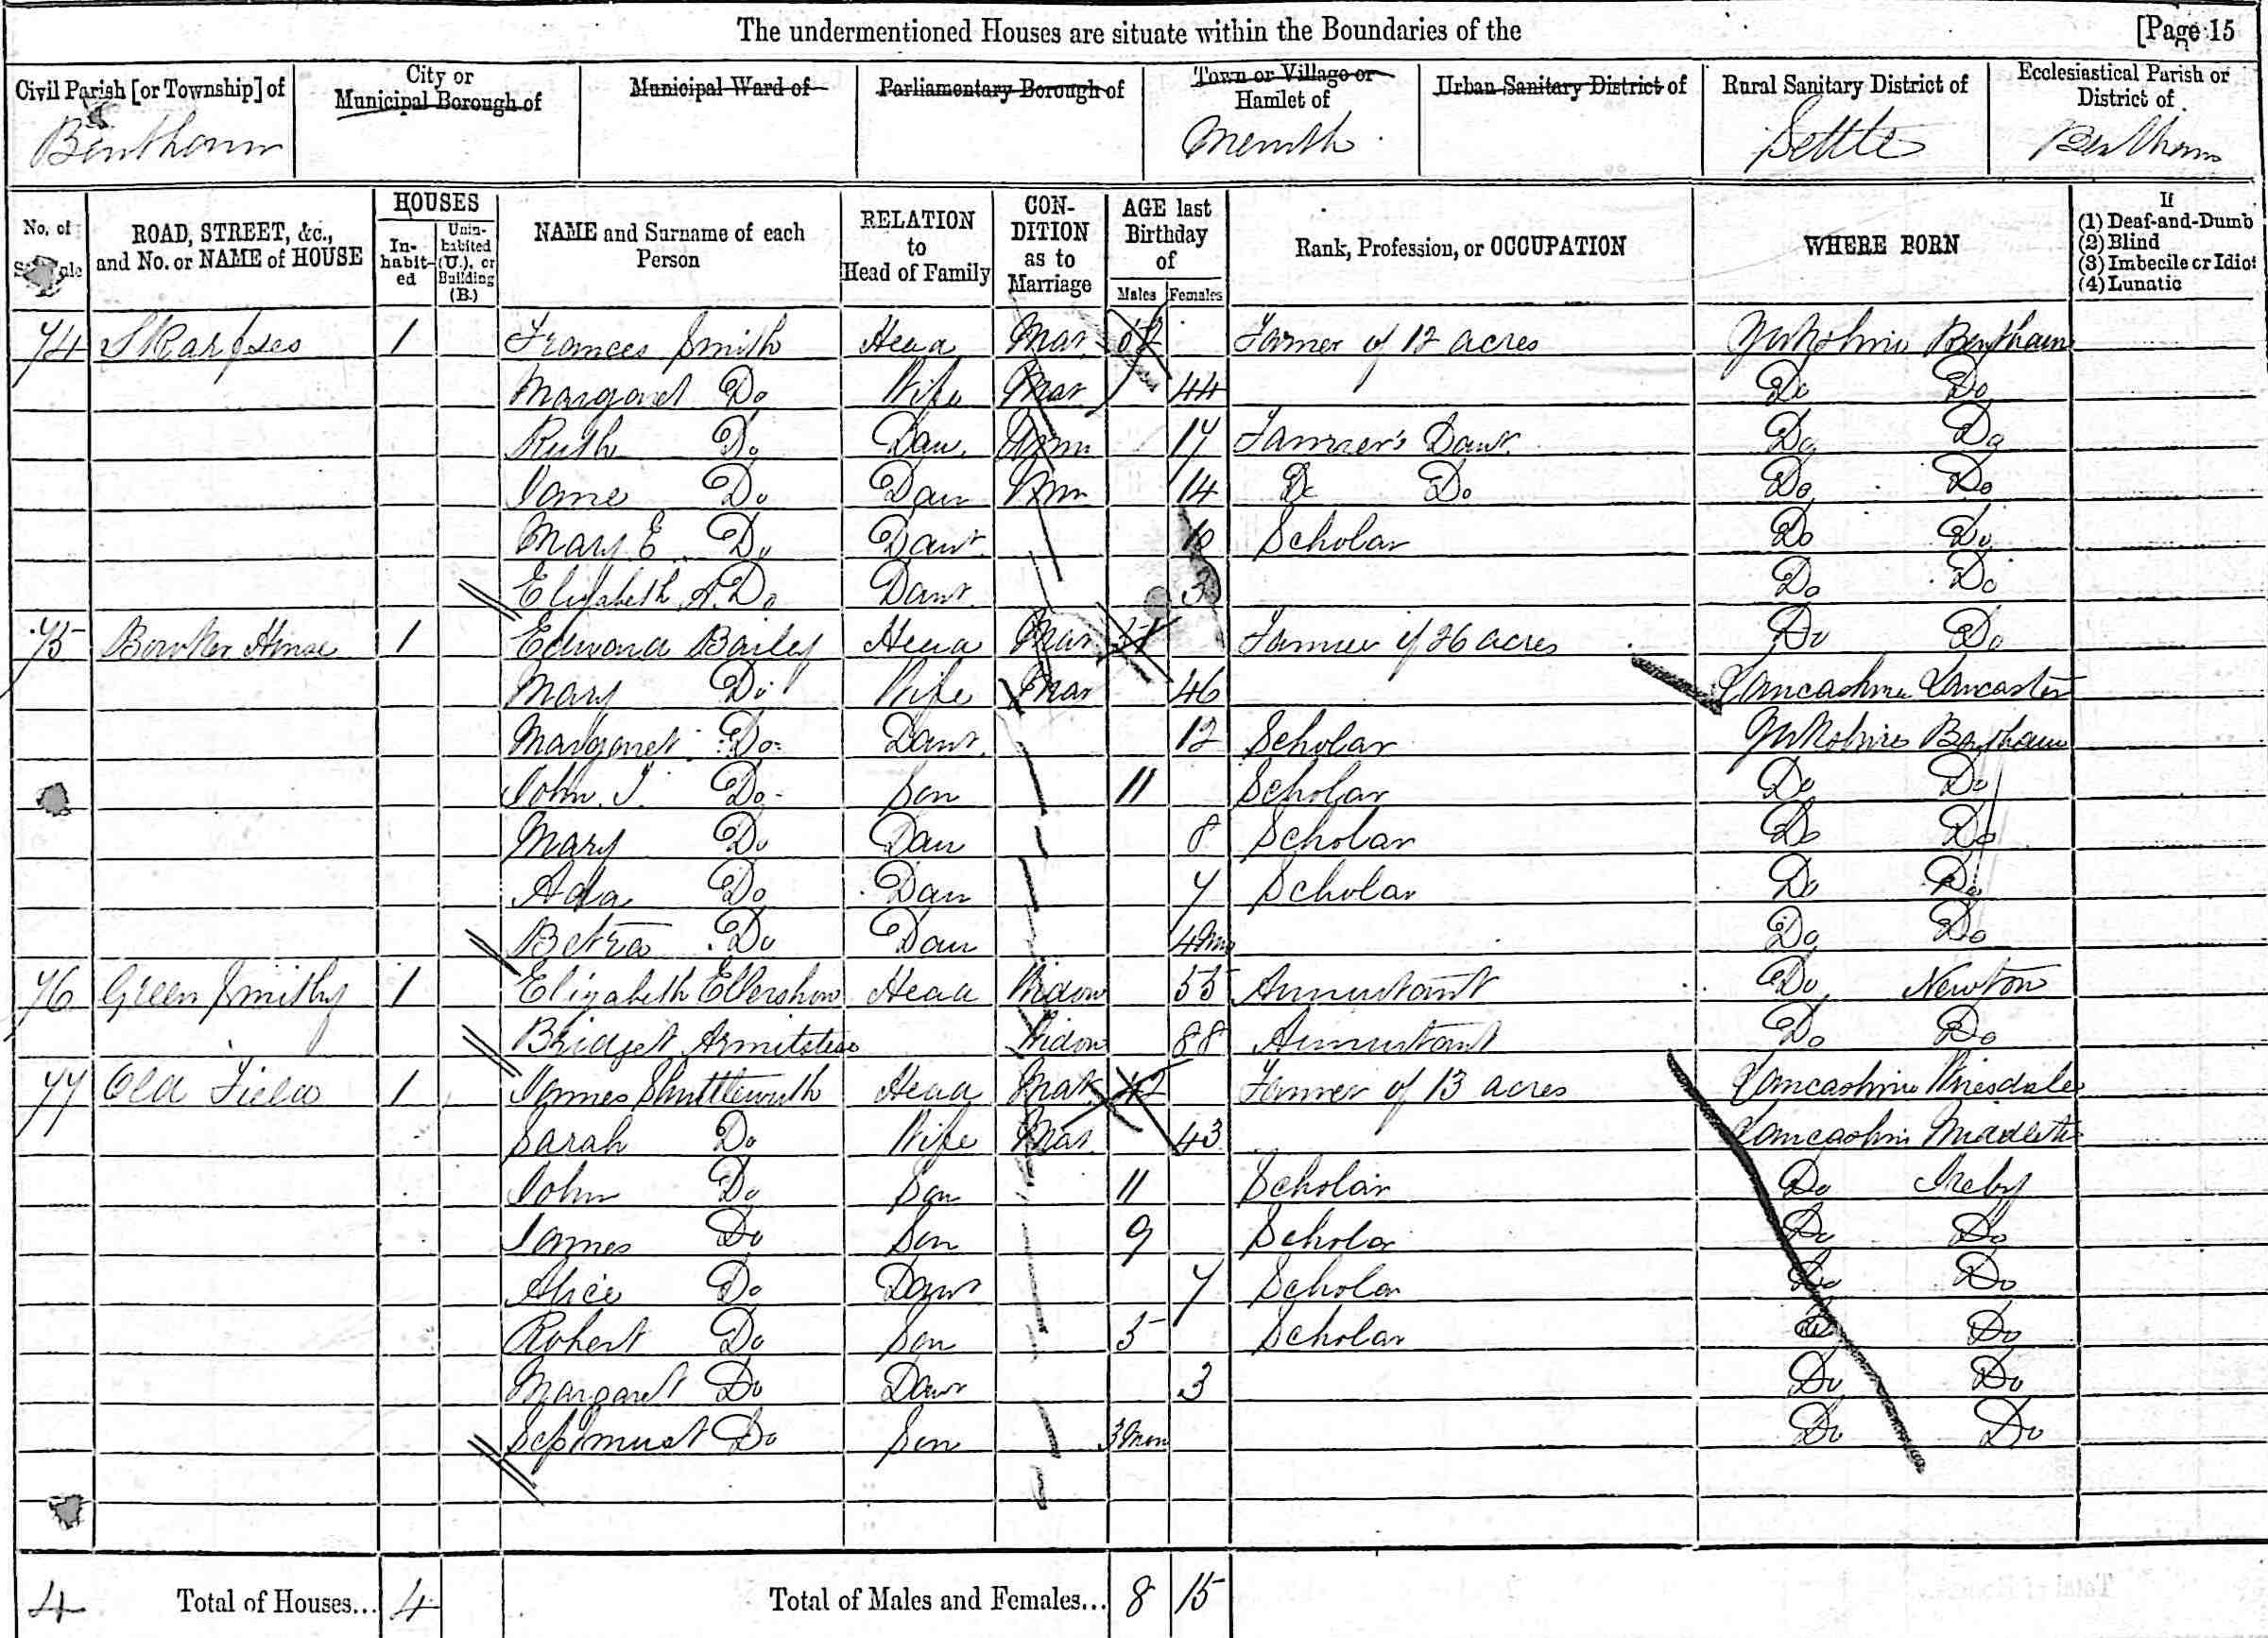 The undermentioned Houses are situate within the Boundaries of the [Page 15
Civil Parish [or Township] of City or Municipal Borough of Municipal Ward of Parliamentary Borough of Town or Village or Hamlet of Urban Sanitary District of Rural Sanitary District of Ecclesiastical Parish or District of
Bentham Settle Bentham
No. of ROAD, STREET, &c., and No. or NAME of HOUSE HOUSES Inhabited Uninhabited (U.), or Building (B.) NAME and Surname of each Person RELATION to Head of Family CONDITION as to Marriage AGE last Birthday of Males Females Rank, Profession, or OCCUPATION WHERE BORN If (1) Deaf-and-Dumb (2) Blind (3) Imbecile or Idiot (4) Lunatic
74 1 Frances Smith Head Mar Farmer of 12 acres Yorkshire Bentham
Margaret Do Wife Mar 44 Do Do
Ruth Do Dau. Unm 17 Farmer's Daur. Do Do
Jane Do Dau Unm 14 Do Do Do Do
Mary E Do Daur. 10 Scholar Do Do
Elizabeth A. Do Daur. 3 Do Do
75 Bowker House 1 Edward Bailey Head Mar Farmer of 26 acres Do Do
Mary Do Wife Mar 46 Lancashire Lancaster
Margaret Do Daur. 12 Scholar Yorkshire Bentham
John. T. Do Son 11 Scholar Do Do
Mary Do Dau 8 Scholar Do Do
Ada Do Dau 7 Scholar Do Do
Do Dau 4 Mo Do Do
76 Green Smithy 1 Elizabeth Ellershaw Head Widow 55 Annuitant Do Newton
Bridget Armitstead Widow 88 Annuitant Do Do
77 Old Field 1 James Shuttleworth Head Mar. 42 Farmer of 13 acres Lancashire Wiresdale
Sarah Do Wife Mar. 43 Lancashire
John Do Son 11 Scholar Do Ireby
James Do Son 9 Scholar Do Do
Alice Do Daur 7 Scholar Do Do
Robert Do Son 5 Scholar Do Do
Margaret Do Daur 3 Do Do
Do Son 3 Mon Do Do
4 Total of Houses... 4 Total of Males and Females... 8 15